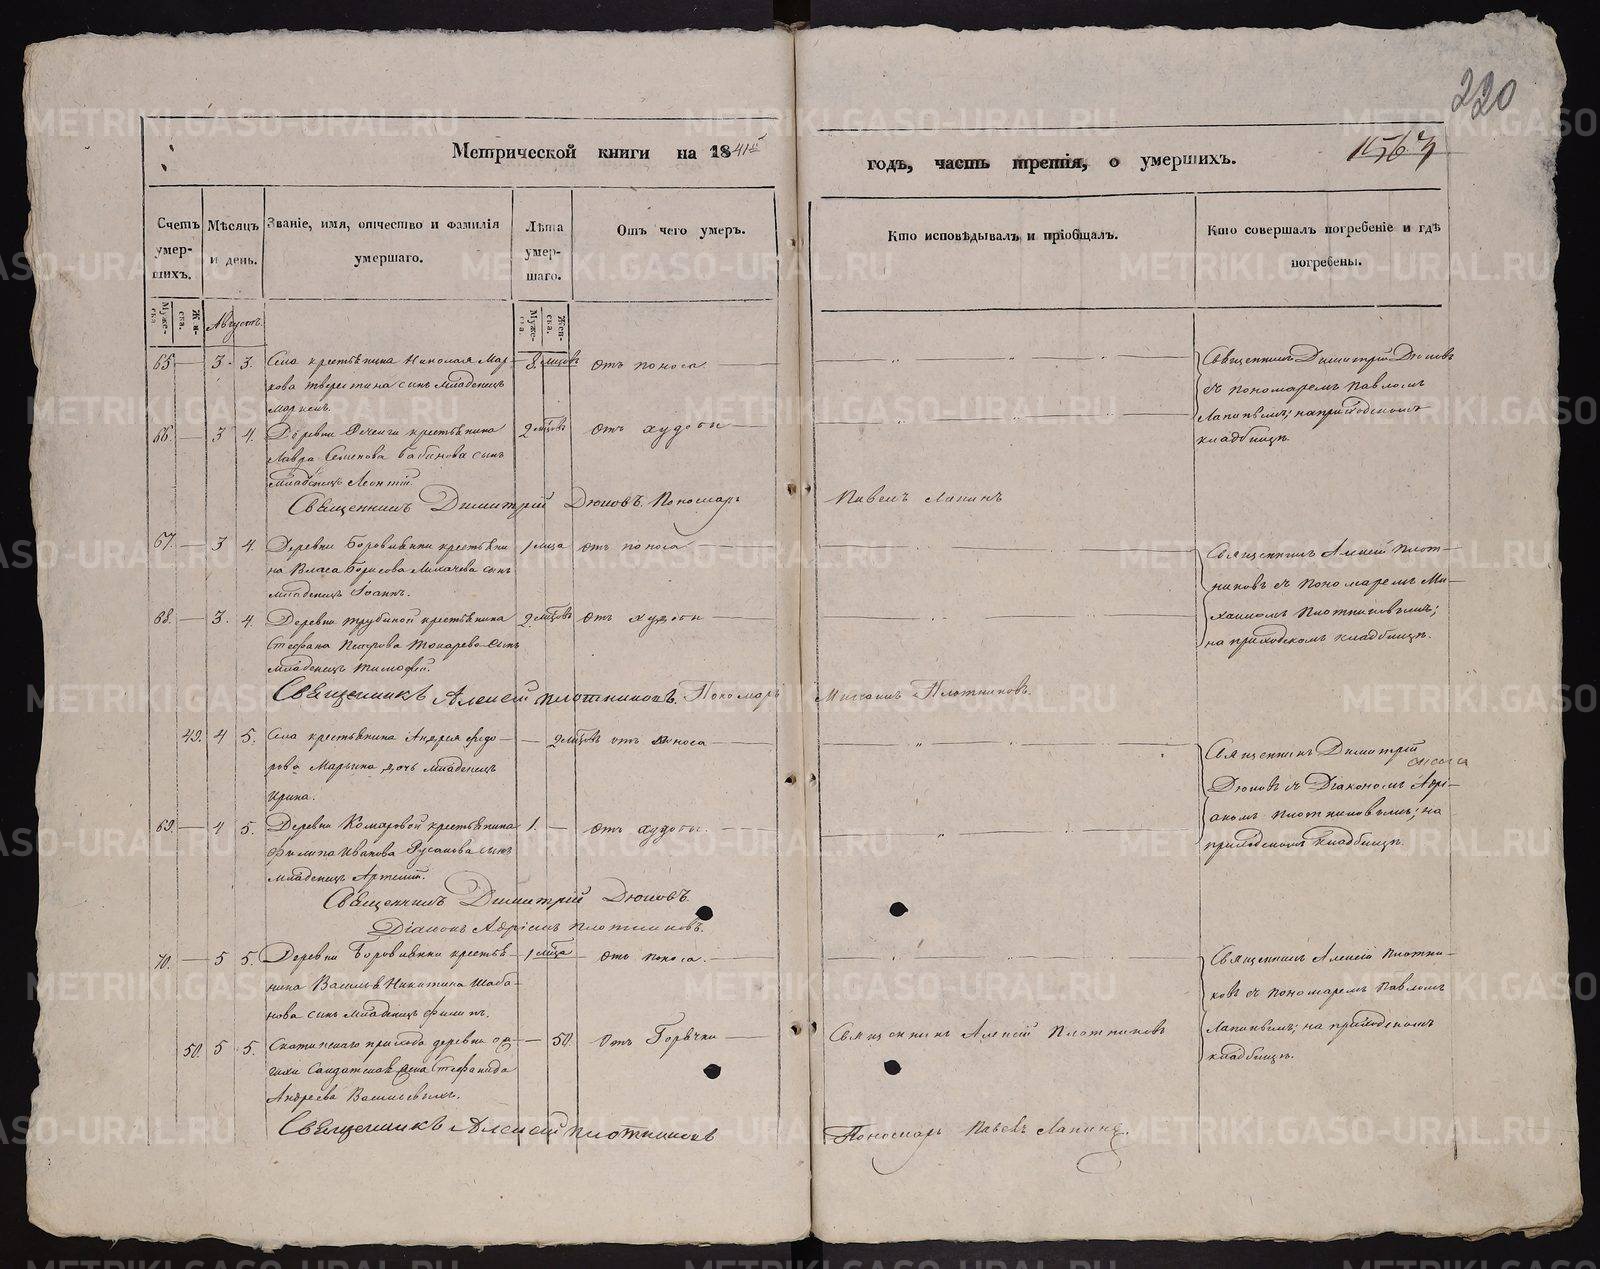 220
1567
Метрической книги на 1841й
годъ, часть третія, о умершихъ.
Счетъ умерших.
Мѣсяцъ и день.
Званіе, имя, отчество и фамилія умершаго.
Лѣта умершаго.
Отъ чего умеръ.
Кто исповѣдывалъ и пріобщалъ.
Кто совершалъ погребеніе и гдѣ погребены.
Августъ
65 3 3. Села крестьянина Николая Мар-
кова сынъ младенецъ
8 мцовъ отъ поноса
Священникъ Димитрій Дюковъ
съ пономаремъ Павломъ
Лапинымъ; на приходскомъ
кладбищѣ.
66. 3 4. Деревни крестьянина
Лавра Семенова Бабинова сынъ
младенецъ Леонтій.
2 мцовъ отъ худобы
Священникъ Димитрій Дюковъ. Пономарь
Павелъ Лапинъ
67. 3 4. Деревни Боровлянки крестьяни
на Власа Борисова Лихачева сынъ
младенецъ Іоаннъ.
1 мца отъ поноса
Священникъ Алексій Плот-
никовъ съ пономаремъ Ми-
хаиломъ Плотниковымъ;
на приходскомъ кладбищѣ.
68. 3. 4. Деревни Трубиной крестьянина
Стефана Петрова Токарева сынъ
младенецъ Тимофей.
2 мцовъ отъ худобы
Священникъ Алексій Плотниковъ. Пономарь
Михаилъ Плотниковъ.
49. 4 5. Села крестьянина Андрея Федо-
рова Марьина дочь младенецъ
Ирина.
2 мцовъ отъ поноса
Священникъ Димитрій
Дюковъ съ Діакономъ Адрі-
аномъ Плотниковымъ; на
приходскомъ кладбищѣ.
69. 4 5. Деревни Комаровой крестьянина
Филипа Иванова Русакова сынъ
младенецъ Артемій.
1. отъ худобы.
Священникъ Димитрій Дюковъ
Діаконъ Адріанъ Плотниковъ.
70. 5 5. Деревни Боровлянки крестья-
нина Василья Никитина Шаба-
нова сынъ младенецъ Филипъ.
1 мца отъ поноса.
Священникъ Алексій Плотни-
ковъ съ пономаремъ Павломъ
Лапинымъ; на приходскомъ
кладбищѣ.
50. 5 5. прихода деревни
Солдатская жена Стефанида
Андреева
50. Отъ Горячки
Священникъ Алексій Плотниковъ
Священникъ Алексій Плотниковъ
Пономарь Павелъ Лапинъ.
METRIKI.GASO-URAL.RU